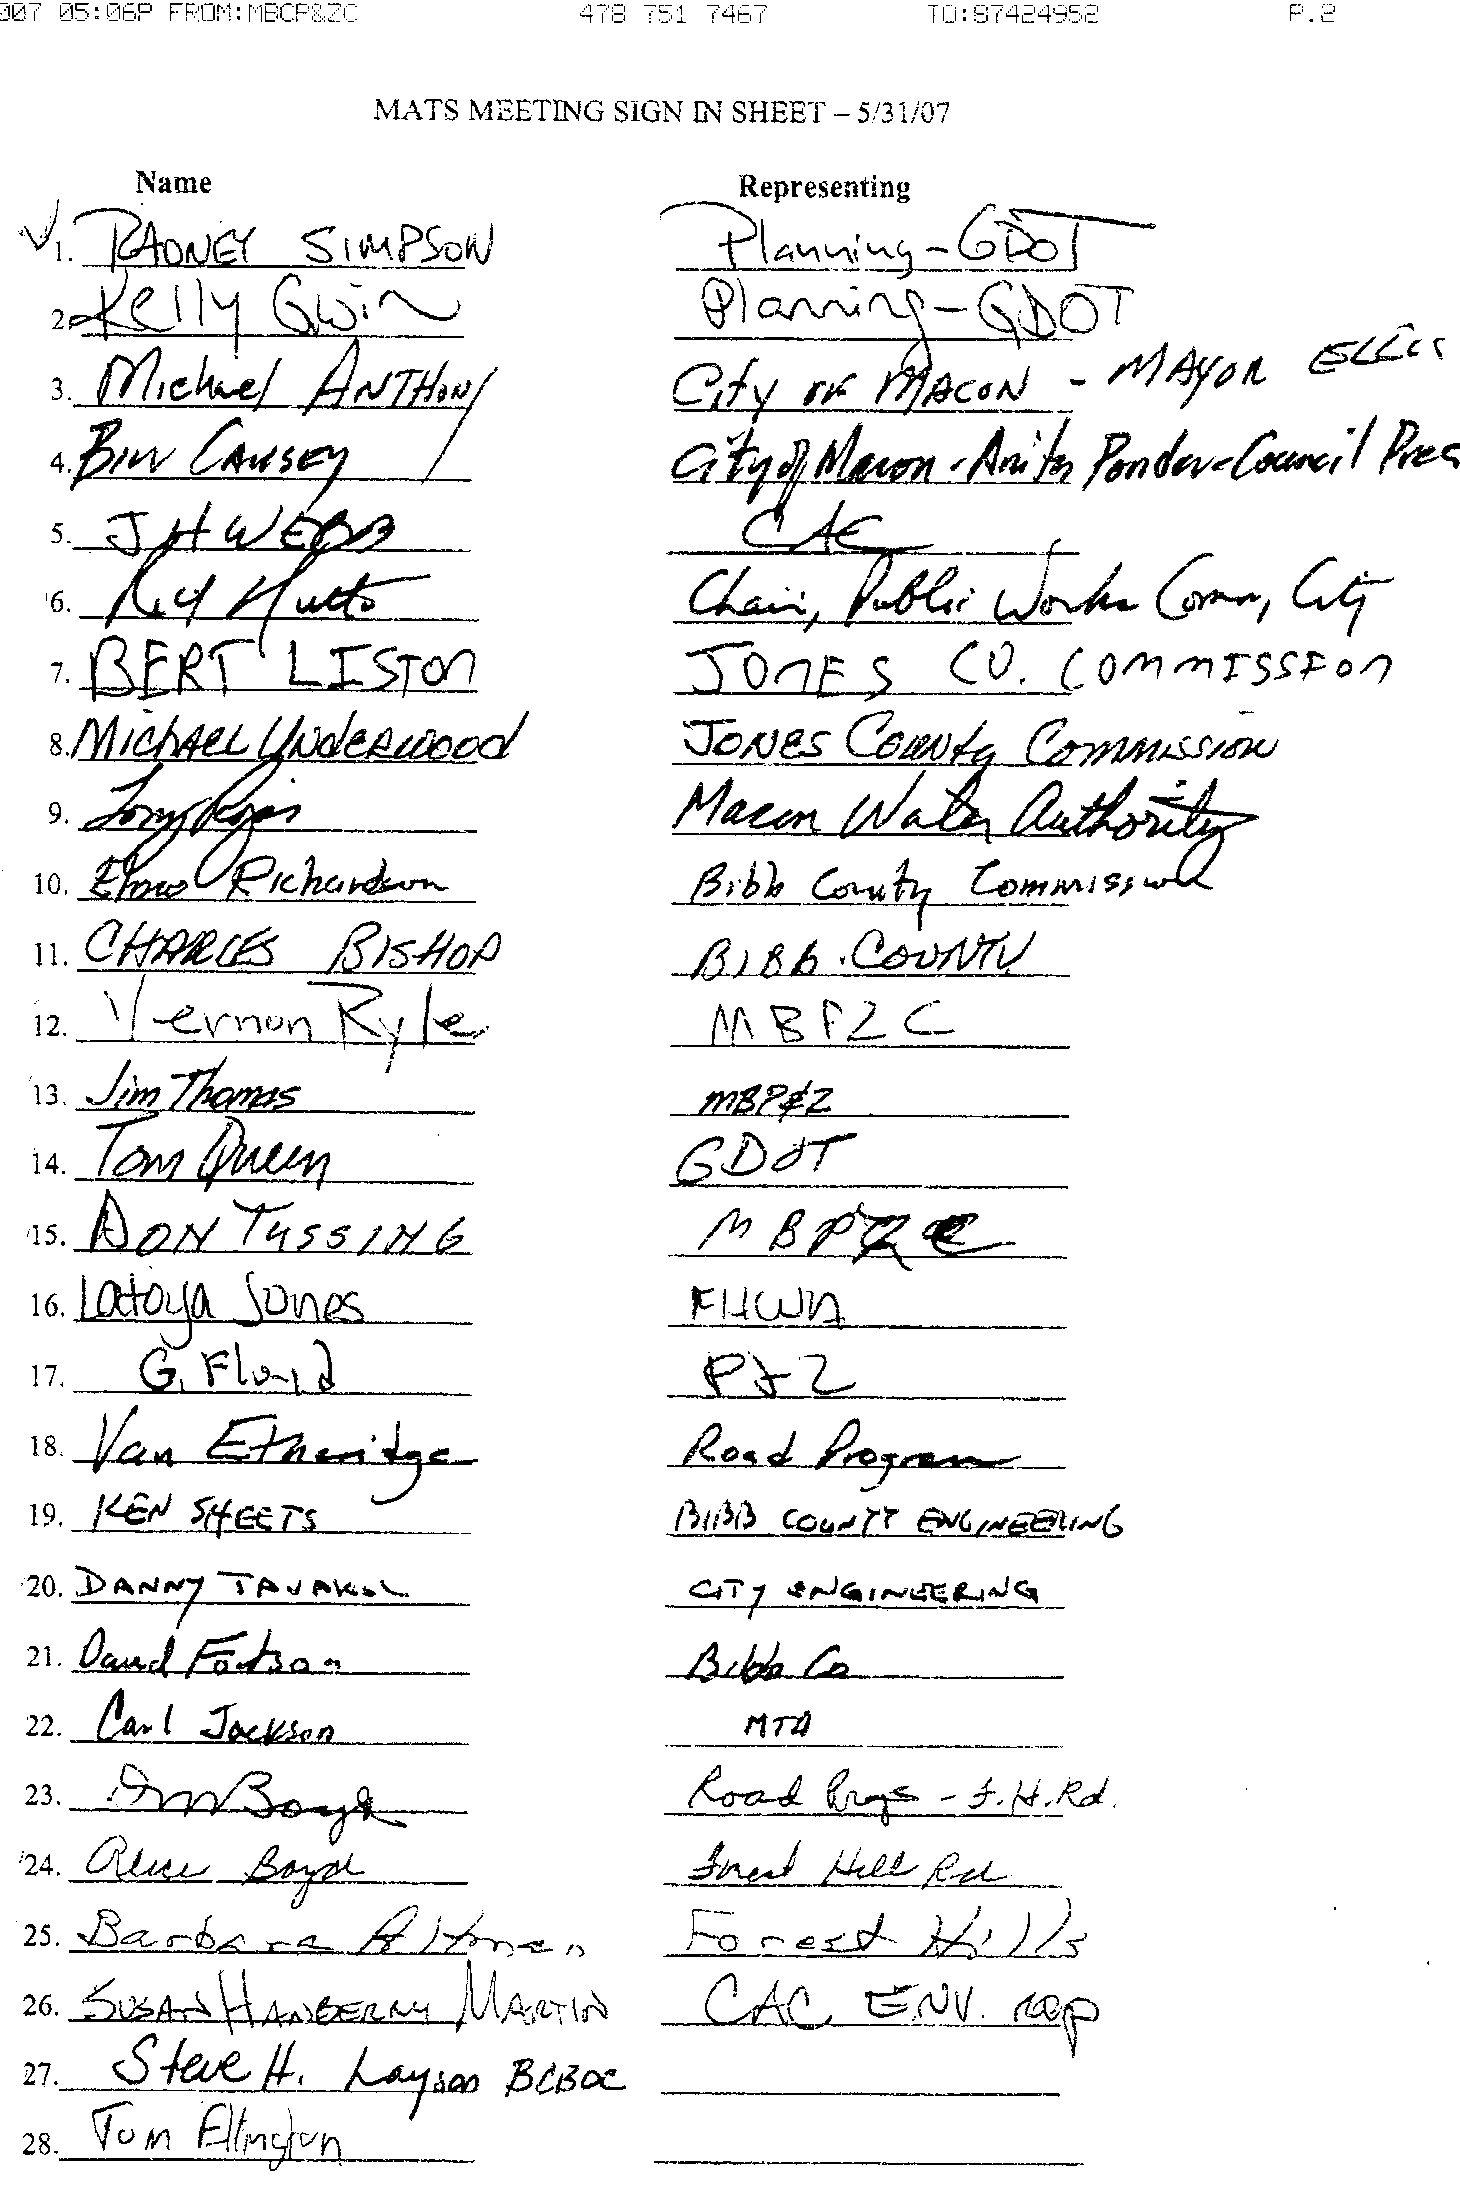 007 05:06P FROM:MBCP&ZC 478 751 7467 TO:97424952 P.2
MATS MEETING SIGN IN SHEET – 5/31/07
Name Representing
1. RADNEY SIMPSON Planning-GDOT
2. Kelly Gwin Planning-GDOT
3. Michael ANTHONY City OF MACON - MAYOR ELLIS
4. Bill CAUSEY City of Macon-Anita Ponder-Council Pres
5. J H WEBB CAC
6. Hutto Chair, Public Works Comm, City
7. BERT LISTON JONES CO. COMMISSION
8. MICHAEL UNDERWOOD JONES COUNTY COMMISSION
9. Tony Rojas Macon Water Authority
10. Elmo Richardson Bibb County Commission
11. CHARLES BISHOP BIBB COUNTY
12. Vernon Ryle MBPZC
13. Jim Thomas MBP&Z
14. Tom Queen GDOT
15. DON TUSSING MBPZC
16. Latoya Jones FHWA
17. G. Floyd P&Z
18. Van Etheridge Road Program
19. KEN SHEETS BIBB COUNTY ENGINEERING
20. DANNY TAVAKOL CITY ENGINEERING
21. David Fortson Bibb Co
22. Carl Jackson MTA
23. Boyd Road Progs - F.H.Rd.
24. Alice Boyd Forest Hill Rd
25. Barbara Forest Hills
26. SUSAN HANBERRY MARTIN CAC ENV. rep
27. Steve H. Layson BCBOC
28. Tom Ellington